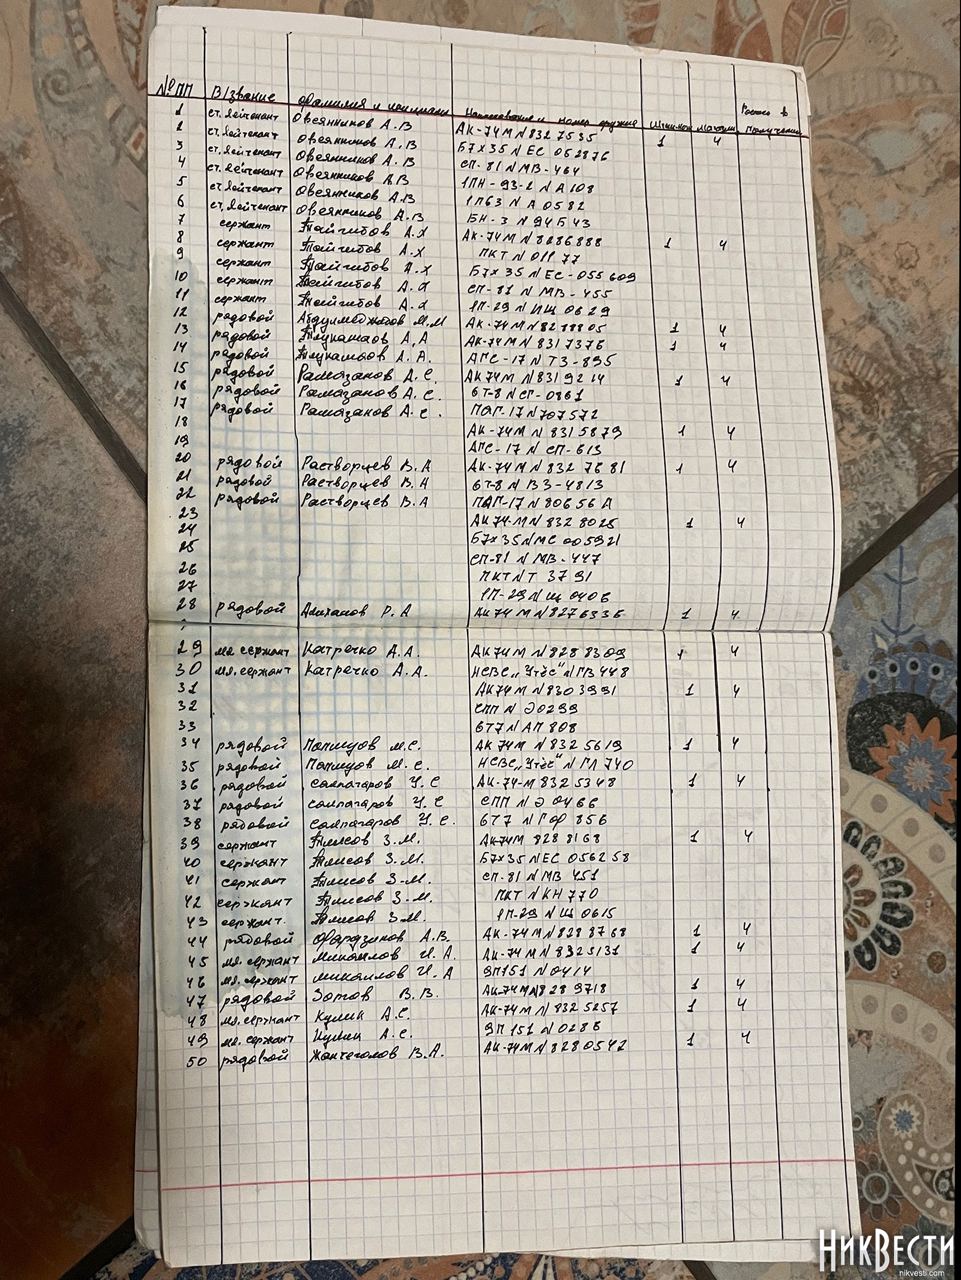 №ПП В/звание Фамилия и инициалы Наименование и номер оружия Магазин Роспись в получении
1 ст. лейтенант Овсянников А.В АК-74М N 8327535 1 4
2 ст. лейтенант Овсянников А.В Б7х35 N ЕС 052876
3 ст. лейтенант Овсянников А.В СП-81 N МВ-464
4 ст. лейтенант Овсянников А.В 1ПН-93-2 N А108
5 ст. лейтенант Овсянников А.В 1П63 N А0582
6 ст. лейтенант Овсянников А.В БН-3 N 94Б43
7 сержант Тайгибов А.Х АК-74М N 8286888 1 4
8 сержант Тайгибов А.Х ПКТ N 01177
9 сержант Тайгибов А.Х Б7х35 N ЕС-055609
10 сержант Тайгибов А.Х СП-81 N МВ-455
11 сержант Тайгибов А.Х 1П-29 N ИЩ 0629
12 рядовой Абдулмеджидов М.М АК-74М N 8288805 1 4
13 рядовой А.А АК-74М N 8317376 1 4
14 рядовой А.А. АГС-17 N ТЗ-895
15 рядовой Рамазанов А.С. АК74М N 8319214 1 4
16 рядовой Рамазанов А.С. 6Т-8 N СГ-0861
17 рядовой Рамазанов А.С. ПАГ-17 N 707572
18 АК-74М N 8315879 1 4
19 АГС-17 N СП-613
20 рядовой Растворцев В.А АК-74М N 8327681 1 4
21 рядовой Растворцев В.А 6Т-8 N ВЗ-4813
22 рядовой Растворцев В.А ПАГ-17 N 80656А
23 АК74-М N 8328025 1 4
24 Б7х35 N МС 005921
25 СП-81 N МВ-447
26 ПКТ N Т 3791
27 1П-29 N ИЩ 0406
28 рядовой Алиханов Р.А АК74М N 8276336 1 4
29 мл. сержант Катречко А.А. АК74М N 8288309 1 4
30 мл. сержант Катречко А.А. НСВС „Утёс“ N ГВ448
31 АК74М N 8303991 1 4
32 СПП N Э0299
33 6Т7 N АП 808
34 рядовой М.С. АК74М N 8325619 1 4
35 рядовой М.С. НСВС „Утёс“ N ГЛ740
36 рядовой Салпагаров У.С АК-74-М 8325348 1 4
37 рядовой Салпагаров У.С СПП N Э0466
38 рядовой Салпагаров У.С. 6Т7 N ГОР 856
39 сержант З.М. АК-74М 8288168 1 4
40 сержант З.М. Б7х35 N ЕС 056258
41 сержант З.М. СП-81 N МВ 451
42 сержант З.М. ПКТ N КН770
43 сержант. З.М. 1П-29 N ИЩ 0615
44 рядовой Фардзинов А.В. АК-74М N 8288768 1 4
45 мл. сержант Микаилов И.А. АК-74М N 8325131 1 4
46 мл. сержант Микаилов И.А 9П151 N 0414
47 рядовой Зотов В.В. АК-74М N 8289718 1 4
48 мл. сержант Кулик А.С. АК-74М N 8325257 1 4
49 мл. сержант Кулик А.С. 9П151 N 0286
50 рядовой В.А. АК-74М N 8280542 1 4
НикВести
nikvesti.com